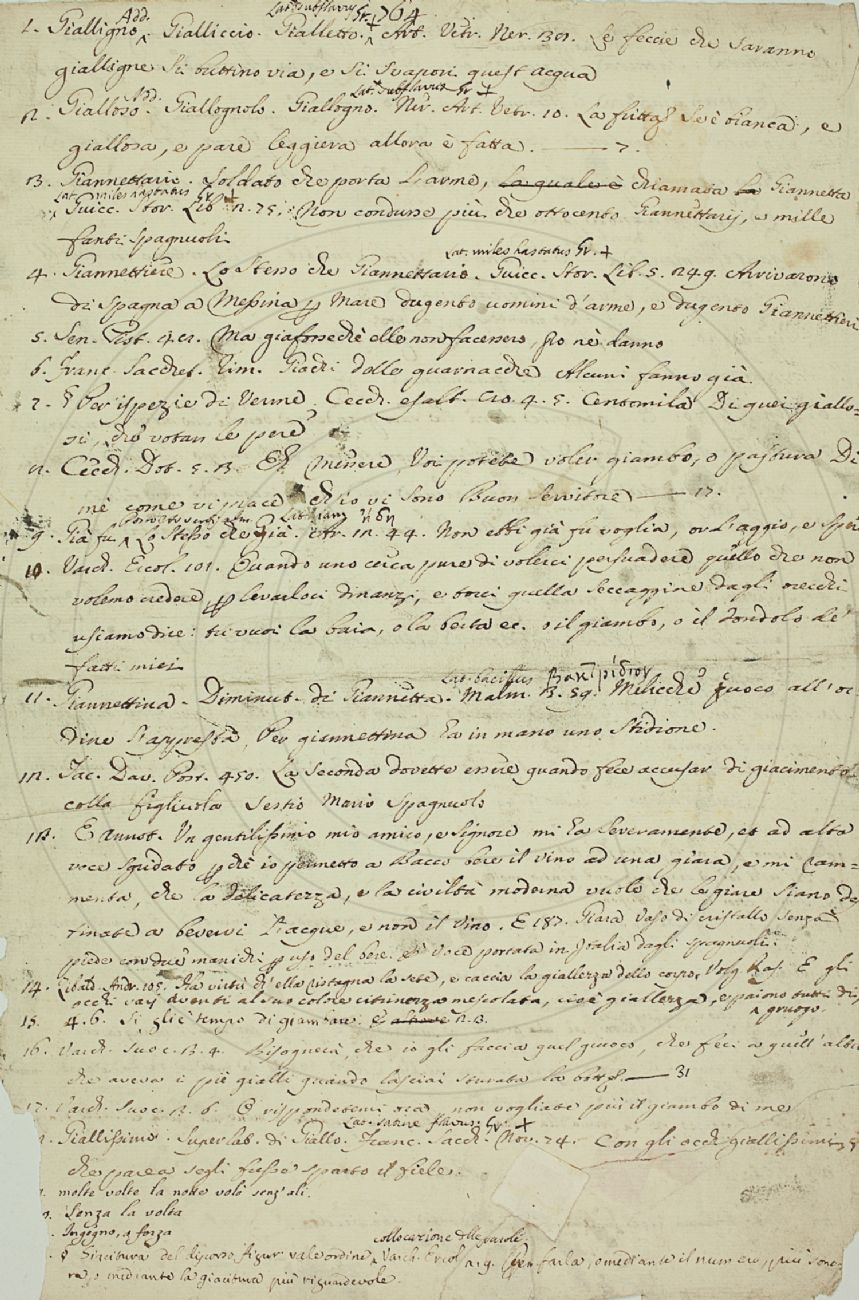 Lat. subflavus Gr. + 764
1. Gialligno Add. Gialliccio. Gialletto. + Art. Vetr. Ner. 131. Le feccie che saranno
gialligne si buttino via, e si svapori quest acqua
Lat. subflavus Gr. +
2. Gialloso Add. Giallognolo. Giallogno. Ner. Art. Vetr. 10. La fritta se è bianca, e
giallosa, e pare leggiera allora è fatta. 7.
13. Giannettario. Soldato che porta l'arme, la quale è chiamata la Giannetta
Lat. miles hastatus Gr. +
Guicc. Stor. Lib. 12. 75. Non condusse più che ottocento Giannettarij, e mille
fanti spagnuoli
Lat. miles hastatus Gr. +
4. Giannettiere. Lo stesso che Giannettario. Guicc. Stor. Lib. 5. 249. Arrivarono
di Spagna a Messina p mare dugento uomini d'arme, e dugento Giannettieri
5. Sen. Pist. 4. Ma giafossechè elle non facessero, pro nè danno
6. Franc. Sacchet. Rim. Giachi delle guarnacche Alcuni fanno già
7. § Per ispezie di Verme. Cecch. esalt. cro. 4. 5. Centomila Di quei giallo=
si, che votan le pere
Cecch. Dot. 5. 3. Eh Messere, Voi potete voler giambo, o pastura Di
me come vi piace ch'io vi sono Buon servitore 17.
Lat. iam ἤδη
9. Già fu Lo stesso che già. 44. Non ebbi già fu voglia, or l'aggio, e spero
10. Varch. Ercol. 101. Quando uno cerca pure di volerci persuadere quello che non
volemo credere, p levarloci dinanzi, e torci quella seccaggine dagli orecchi
usiamo dire: tu vuoi la baia, o la berta ec. o il giambo, o il dondolo de'
fatti miei
Lat. bacillus Βακτρίδιον
11. Giannettina. Diminut. di Giannetta. Malm. 3. 59. Melicche cuoco all'or
dine s'appresta, Per giannettina ha in mano uno stidione.
12. Tac. Dav. Post. 450. La seconda dovette essere quando fece accusar di giacimento
colla figliuola Sestio Mario Spagnuolo
13. E annot. Un gentilissimo mio amico, e Signore mi ha severamente, et ad alta
voce sgridato perchè io permetto a Bacco bere il vino ad una giara, e mi ram=
menta, che la dilicatezza, e la civiltà moderna vuole che le giare siano des
tinate a bevervi l'acque, e non il vino. E 187. Giara Vaso di cristallo senza
piede con due manichi p uso del bere. è voce portata in Italia dagli spagnuoli.
14. Libad. Andr. 105. Ha virtù ch'ella ristagna la sete, e caccia la giallezza dello corpo. Volg. Ras. E gli
occhi suoi diventi al suo colore citrinezza mescolata, cioè giallezza, e paiono tutti di
gruogo.
15. 4. 6. Si gli è tempo di giambare. E altrove 12. 3.
16. Varch. Suoc. 3. 4. Bisognerà, che io gli faccia quel giuoco, che feci a quell'altro
che aveva i piè gialli quando lasciai sturata la botte. 31
17. Varch. Suoc. 2. 6. O rispondetemi ora, non vogliate più il giambo di me
Lat. sane flavus Gr. +
Giallissimo. Superlat. di Giallo. Franc. Sacch. Nov. 74. Con gli occhi giallissimi,
che parea segli fusse sparto il fiele.
molte volte la notte volò senz'ali.
Senza la volta
Ingegno, e forza
collocazione delle parole
§ Giacitura del discorso, figur. vale ordine, Varch. Ercol. 219. farla, o mediante il numero, più sono
ra, o mediante la giacitura più riguardevole.